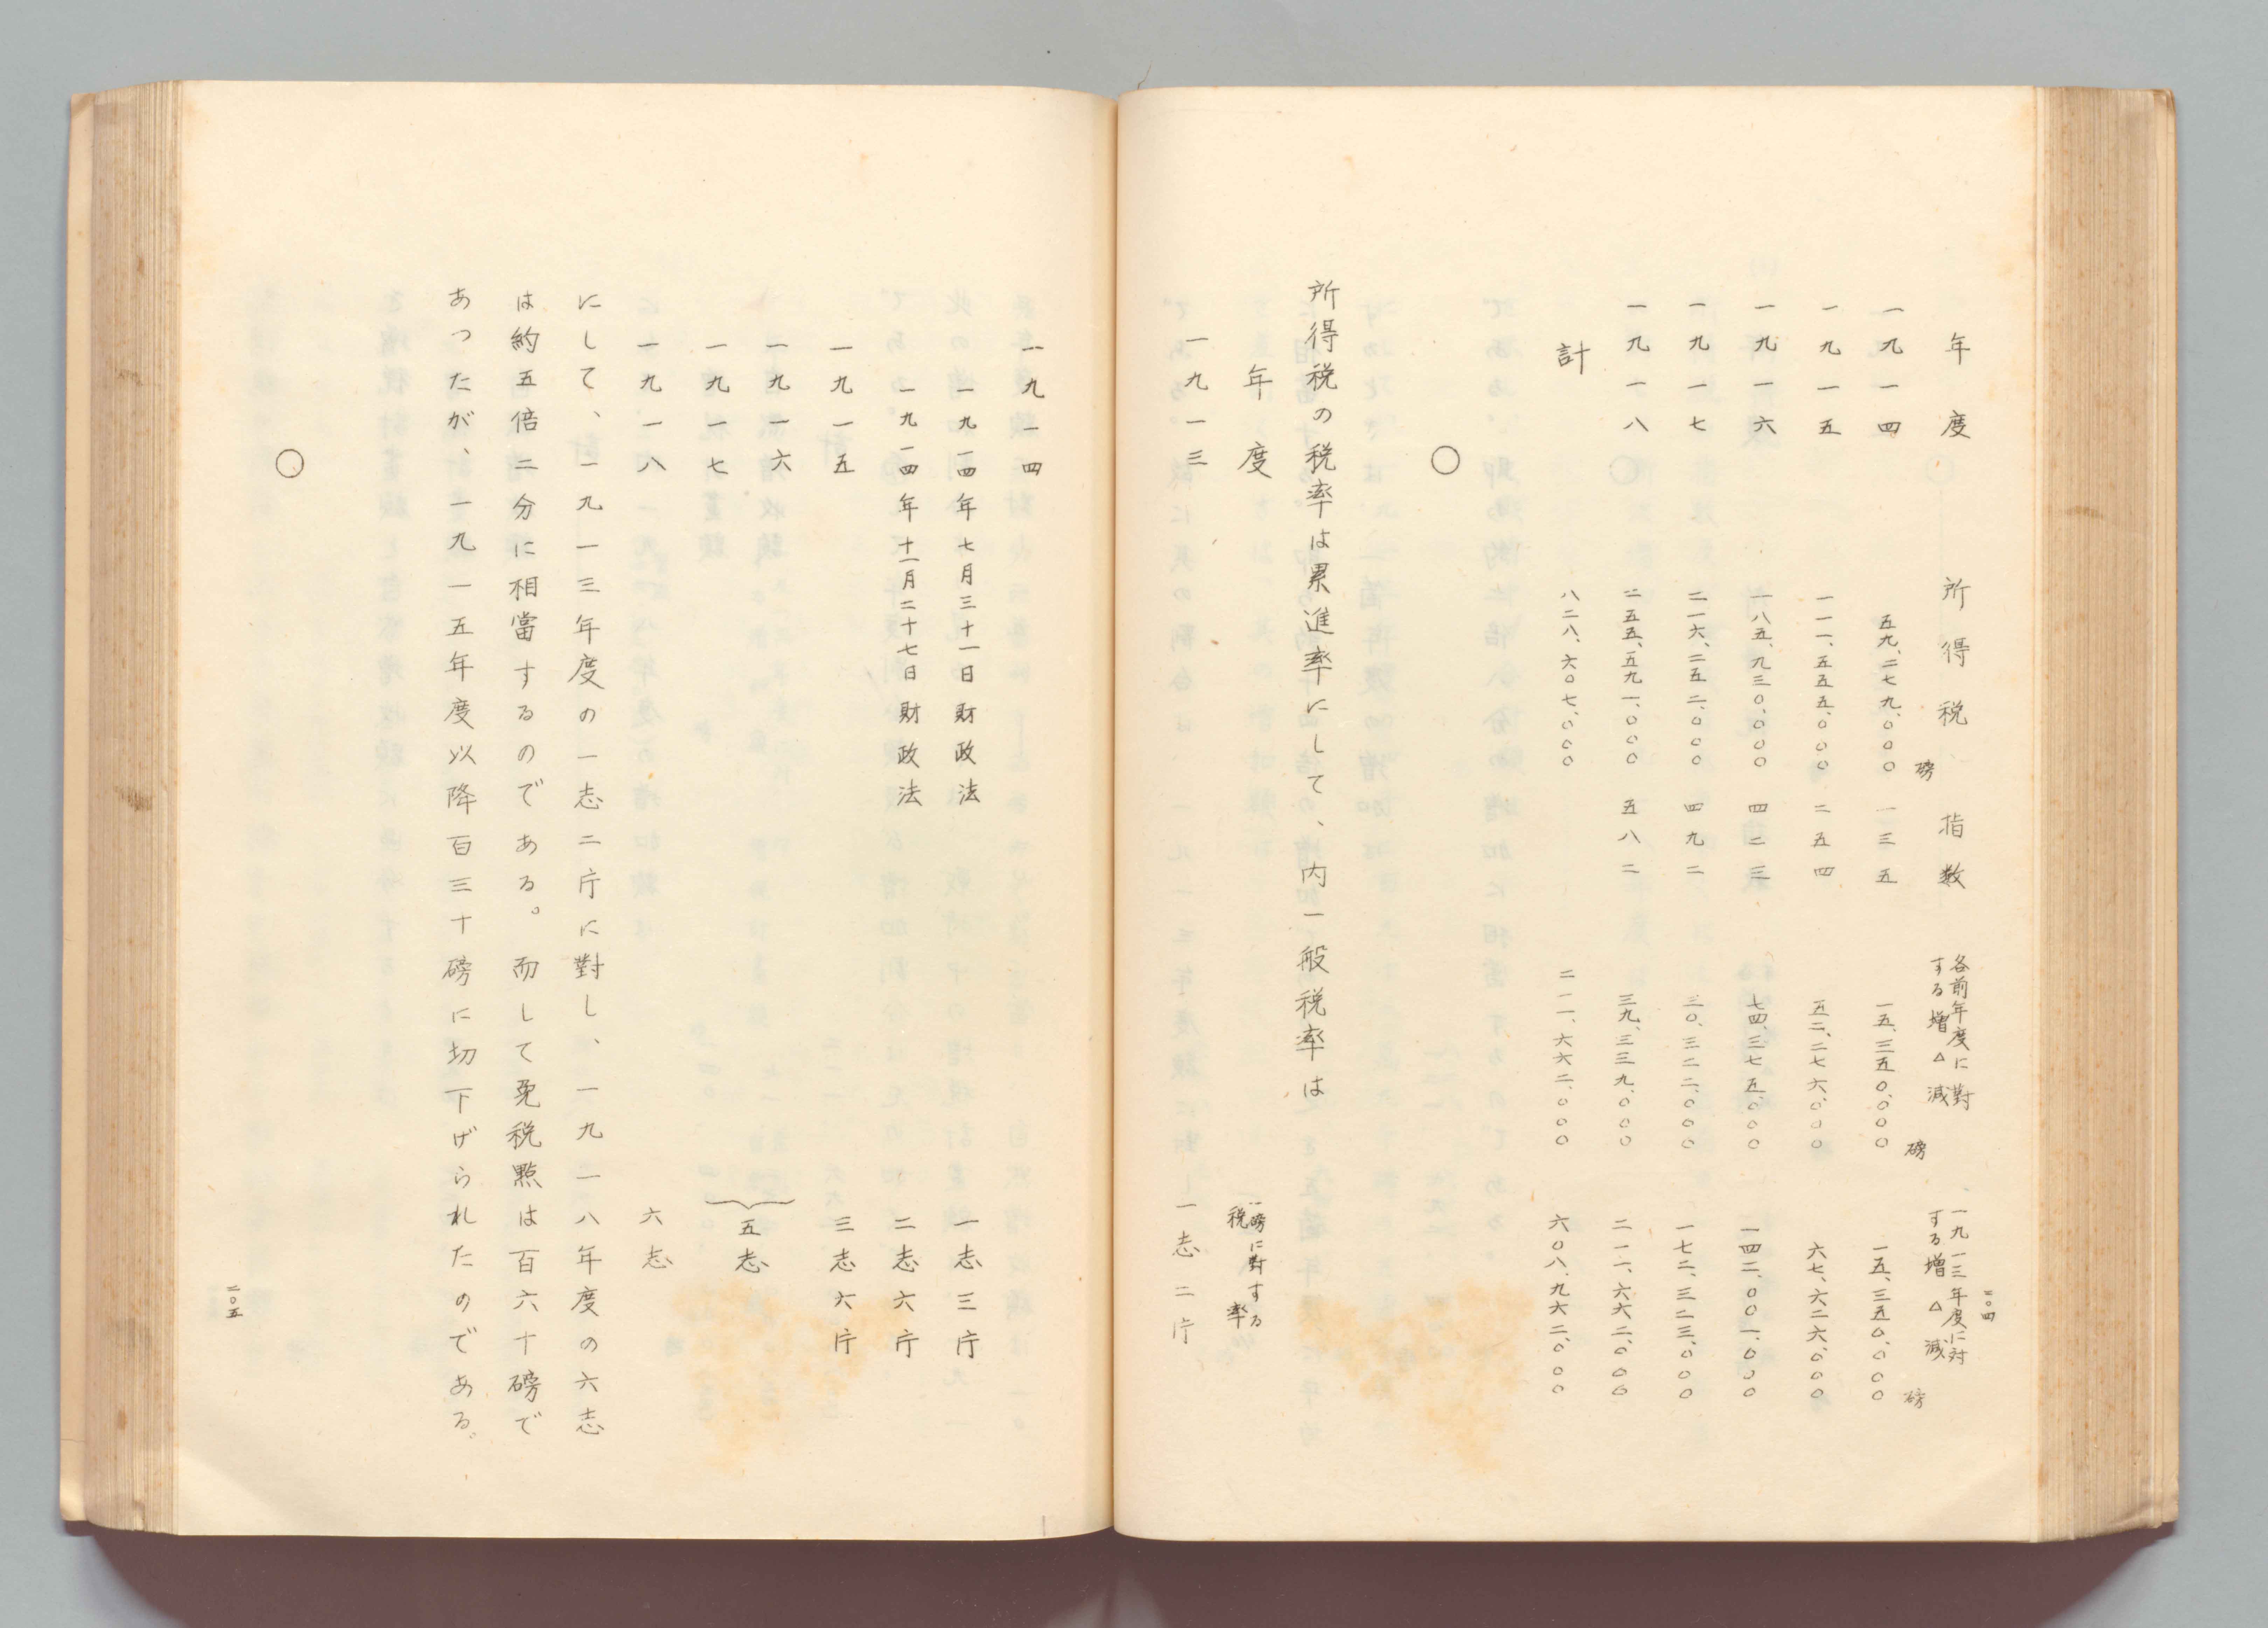 二〇四
年度 所得税 指数 各前年度に對する増△減 一九一三年度に対する増△減
磅 磅 磅
一九一四 五九、二七九、〇〇〇 一三五 一五、三五〇、〇〇〇 一五、三五〇、〇〇〇
一九一五 一一一、五五五、〇〇〇 二五四 五二、二七六、〇〇〇 六七、六二六、〇〇〇
一九一六 一八五、九三〇、〇〇〇 四二三 七四、三七五、〇〇〇 一四二、〇〇一、〇〇〇
一九一七 二一六、二五二、〇〇〇 四九二 三〇、三二二、〇〇〇 一七二、三二三、〇〇〇
一九一八 二五五、五九一、〇〇〇 五八二 三九、三三九、〇〇〇 二一一、六六二、〇〇〇
計 八二八、六〇七、〇〇〇 二一一、六六二、〇〇〇 六〇八、九六二、〇〇〇
〇
所得税の税率は累進率にして、内一般税率は
年度 一磅に對する税率
一九一三 一志二庁
一九一四
一九一四年七月三十一日財政法 一志三庁
一九一四年十一月二十七日財政法 二志六庁
一九一五 三志六庁
一九一六
一九一七 五志
一九一八 六志
にして、一九一三年度の一志二庁に對し、一九一八年度の六志
は約五倍二分に相當するのである。而して免税點は百六十磅で
あつたが、一九一五年度以降百三十磅に切下げられたのである。
〇
二〇五